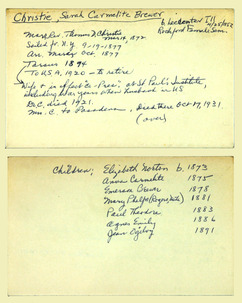 Christie, Sarah Carmelite Brewer
b. Lockport Ill.
Rockford Female Sem.
Mar. Rev. Thomas D. Christie
Mar 14, 1872
Sailed fr. N.Y. 9-19-1877,
Arr. Oct, 1877
Tarsus 1894
To U.S.A, 1920 - & retire
Wife of "Co-Pres" of St Paul's Institute,
including war years when husband in US
D.C. died 1921.
Mrs. C. to Pasadena, Died there Oct 17, 1931
(over)
Children; Elizabeth Norton b. 1873
Anna Carmelite 1875
Emerson Brewer 1878
Mary Phelps (Rogers) 1881
Paul Theodore 1883
Agnes Emily 1886
Jean Ogilvy 1891